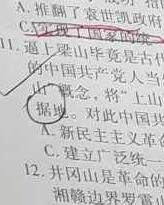 A. 推翻了袁世凯政府
C. 实现了国家的统一
11. 逼上梁山毕竟是古代
的中国共产党人当
山"概念，将"上山
据地。对此中国共
A. 新民主主义革命
C. 建立广泛统一
12. 井冈山是革命的
湘赣边界罗霄